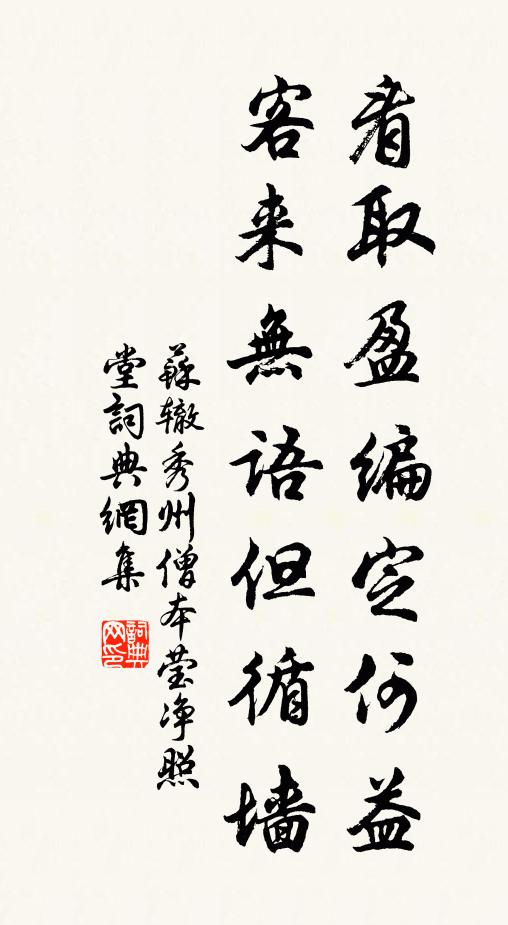 看取盈编定何益
客来無语但循墙
蘇辙秀州僧本莹净照
堂詞典網集
詞典网印